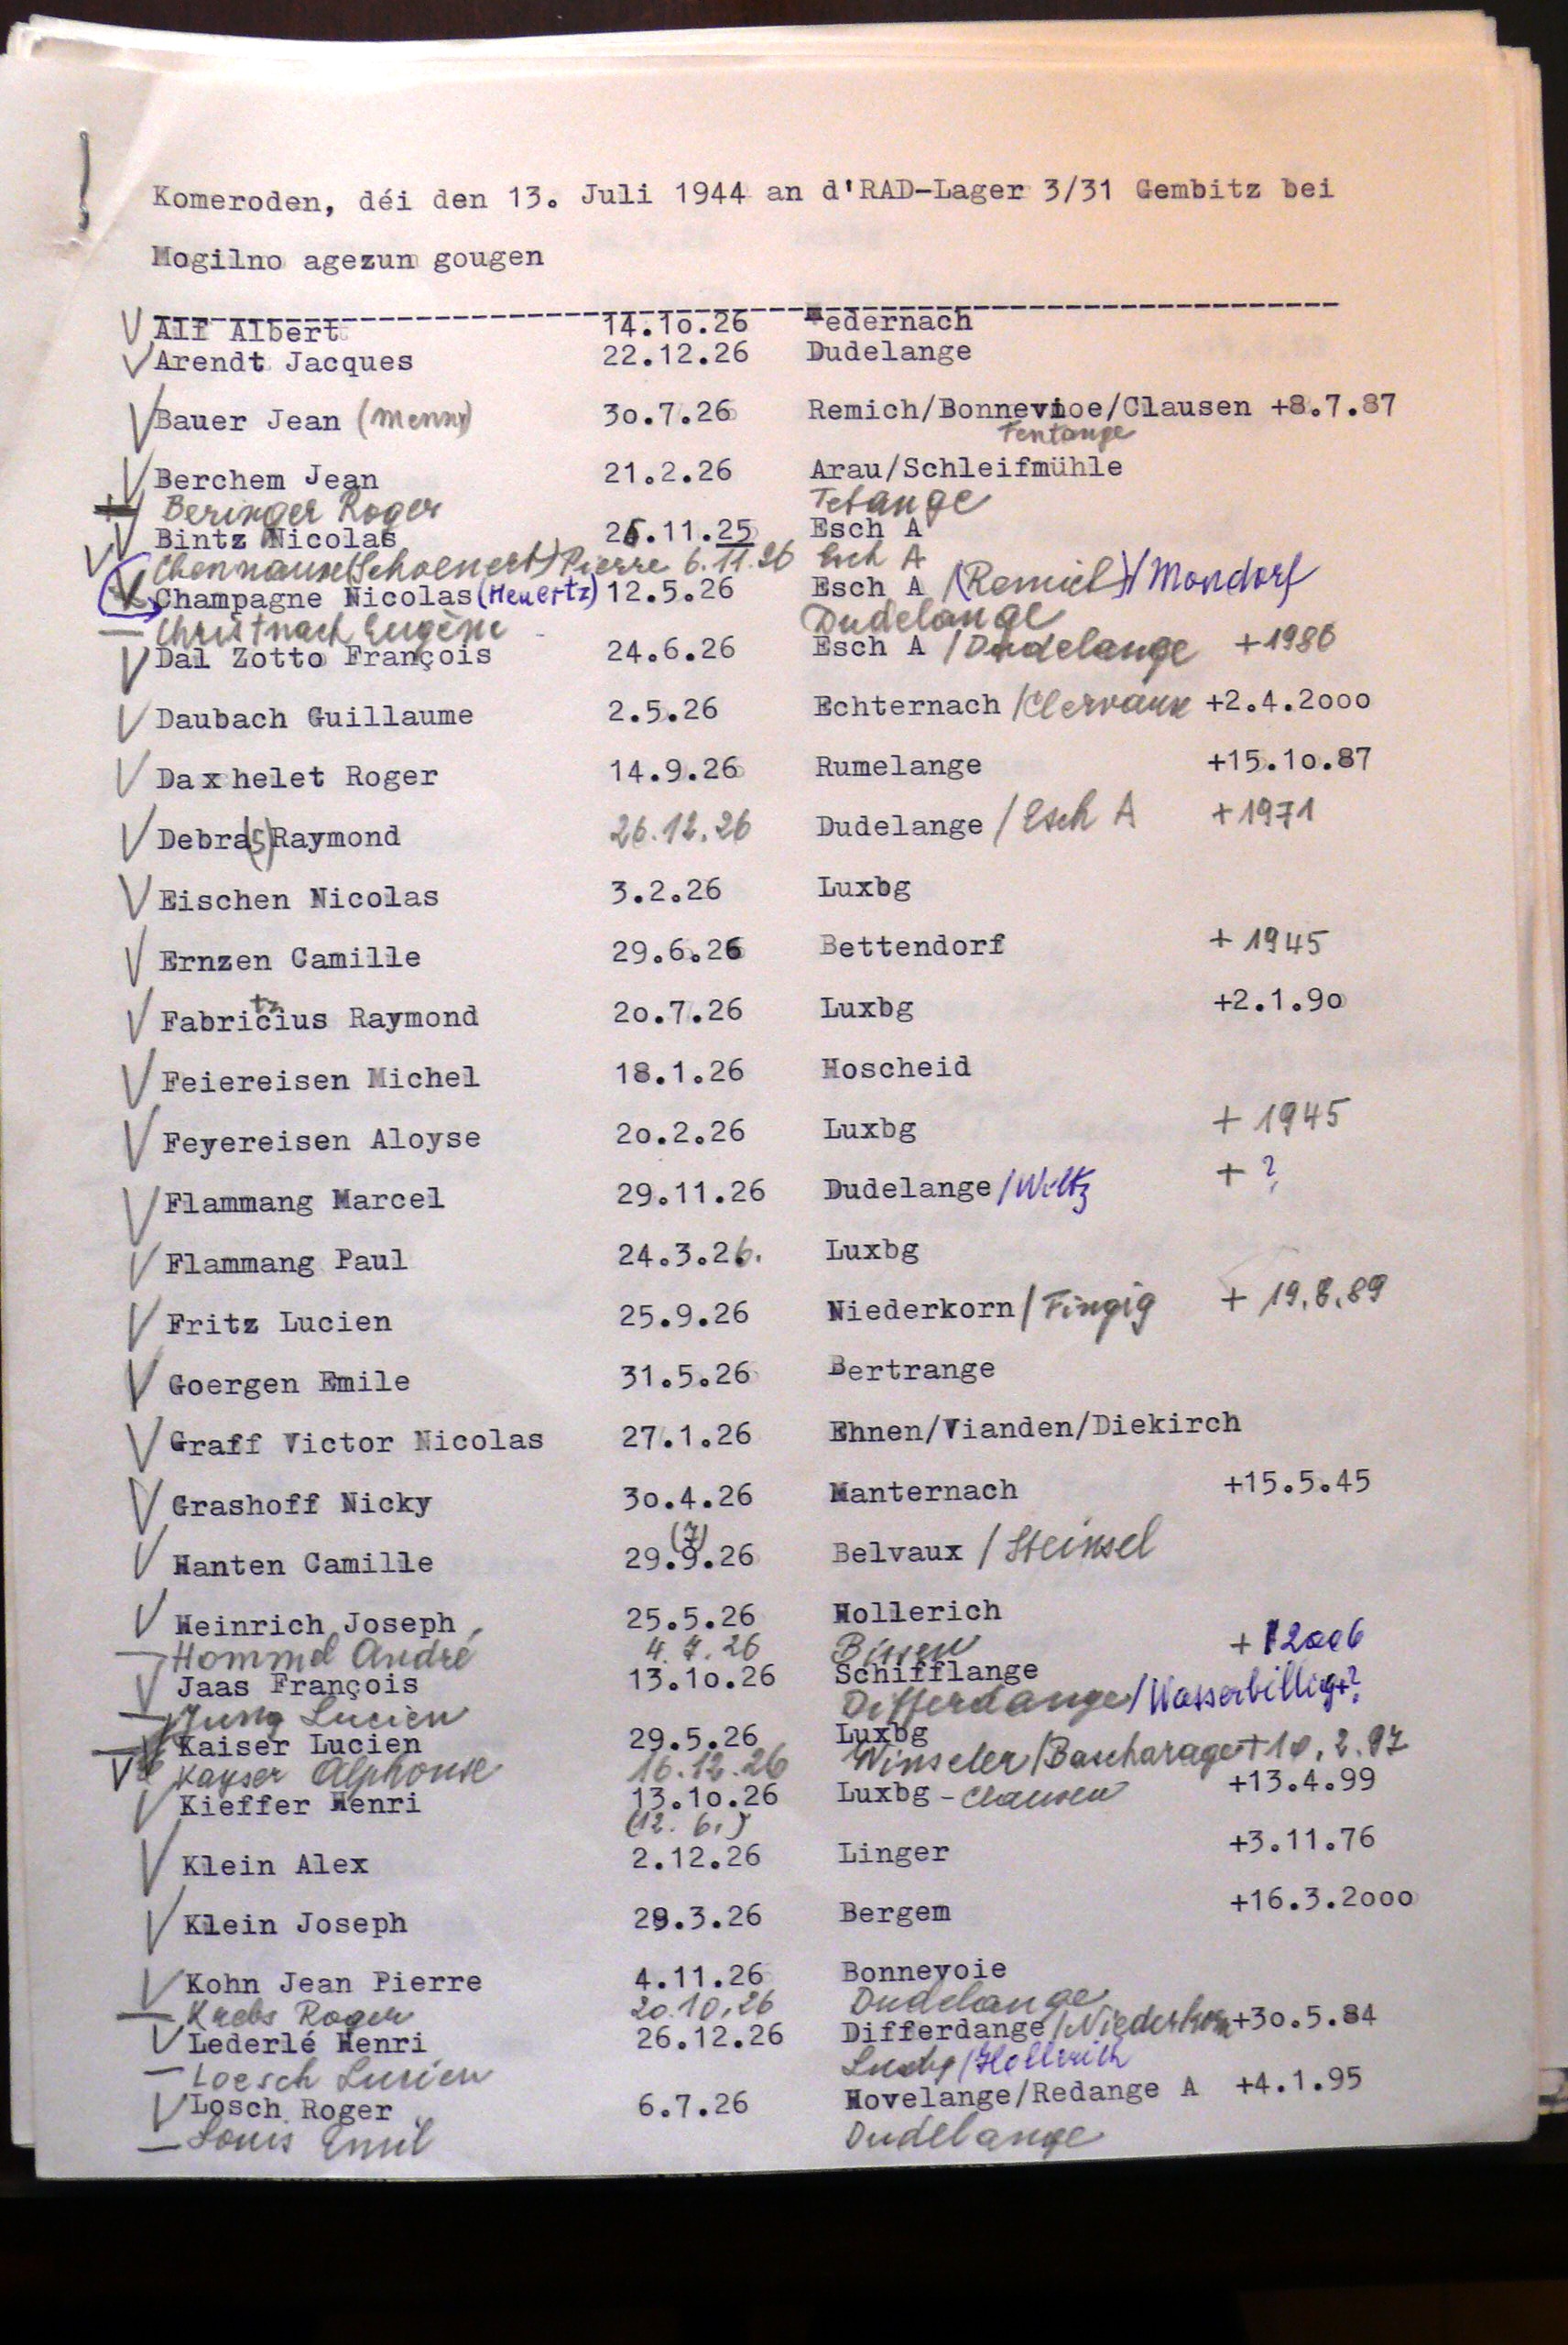 Komeroden, déi den 13. Juli 1944 an d'RAD-Lager 3/31 Gembitz bei
Mogilno agezun gougen
Alf Albert 14.10.26 Wedernach
Arendt Jacques 22.12.26 Dudelange
Bauer Jean (Menny) 30.7.26 Remich/Bonnevioe/Clausen +8.7.87
Fentange
Berchem Jean 21.2.26 Arau/Schleifmühle
Beringer Roger Tetange
Bintz Nicolas 26.11.25 Esch A
Chennaux (Schoenert) Pierre 6.11.26 Esch A
Champagne Nicolas (Heuertz) 12.5.26 Esch A / (Remich) / Mondorf
Christnach Eugène Dudelange
Dal Zotto François 24.6.26 Esch A / Dudelange +1986
Daubach Guillaume 2.5.26 Echternach / Clervaux +2.4.2000
Daxhelet Roger 14.9.26 Rumelange +15.10.87
Debra(s) Raymond 26.12.26 Dudelange / Esch A +1971
Eischen Nicolas 3.2.26 Luxbg
Ernzen Camille 29.6.26 Bettendorf + 1945
tz
Fabricius Raymond 20.7.26 Luxbg +2.1.90
Feiereisen Michel 18.1.26 Hoscheid
Feyereisen Aloyse 20.2.26 Luxbg + 1945
Flammang Marcel 29.11.26 Dudelange / Wiltz + ?
Flammang Paul 24.3.26. Luxbg
Fritz Lucien 25.9.26 Niederkorn / Fingig + 19.8.89
Goergen Emile 31.5.26 Bertrange
Graff Victor Nicolas 27.1.26 Ehnen/Vianden/Diekirch
Grashoff Nicky 30.4.26 Manternach +15.5.45
(7)
Hanten Camille 29.9.26 Belvaux / Steinsel
Heinrich Joseph 25.5.26 Hollerich
Hommel André 4.7.26 Bissen + 2006
Jaas François 13.10.26 Schifflange
Jung Lucien Differdange / Wasserbillig +?
Kaiser Lucien 29.5.26 Luxbg
Kayser Alphonse 16.12.26 Winseler / Bascharage +10.2.97
Kieffer Henri 13.10.26 Luxbg - Clausen +13.4.99
(12. 6.)
Klein Alex 2.12.26 Linger +3.11.76
Klein Joseph 29.3.26 Bergem +16.3.2000
Kohn Jean Pierre 4.11.26 Bonnevoie
Krebs Roger 20.10.26 Dudelange
Lederlé Henri 26.12.26 Differdange / Niederkorn +30.5.84
Loesch Lucien Luxbg / Hollerich
Losch Roger 6.7.26 Hovelange/Redange A +4.1.95
Louis Emil Dudelange